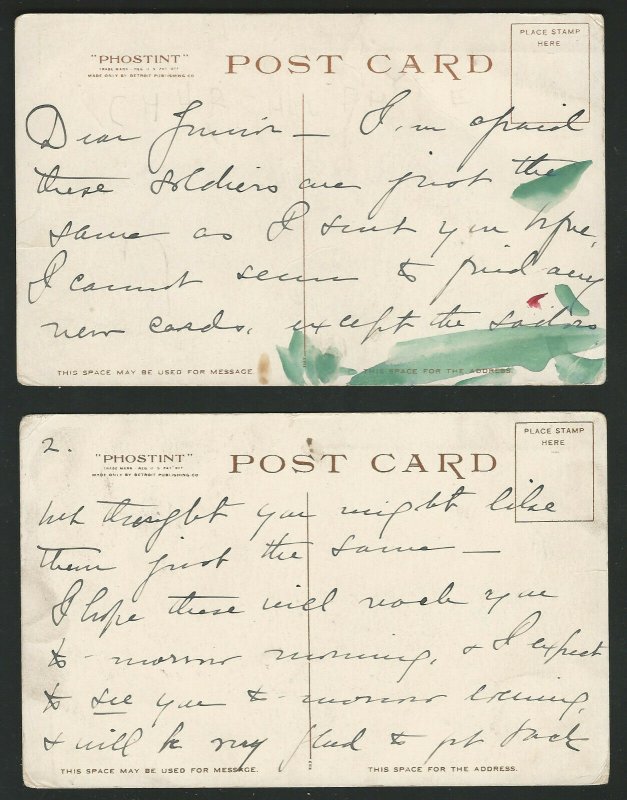 "PHOSTINT"
TRADE MARK - REG. U. S. PAT. OFF.
MADE ONLY BY DETROIT PUBLISHING CO
POST CARD
PLACE STAMP
HERE
Dear Junior — I'm afraid
these soldiers are just the
same as I sent you before,
I cannot seem to find any
new cards, except the sailors
THIS SPACE MAY BE USED FOR MESSAGE.
THIS SPACE FOR THE ADDRESS.
2.
"PHOSTINT"
TRADE MARK - REG. U. S. PAT. OFF.
MADE ONLY BY DETROIT PUBLISHING CO
POST CARD
PLACE STAMP
HERE
but thought you might like
them just the same —
I hope these will reach you
to-morrow morning, & I expect
to see you to-morrow evening,
& will be very glad to get back
THIS SPACE MAY BE USED FOR MESSAGE.
THIS SPACE FOR THE ADDRESS.